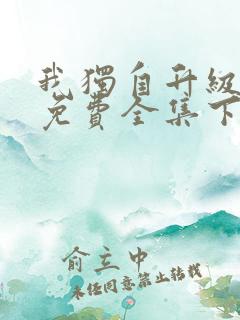 我獨自升級
免費全集下
俞立中
未經同意禁止轉載